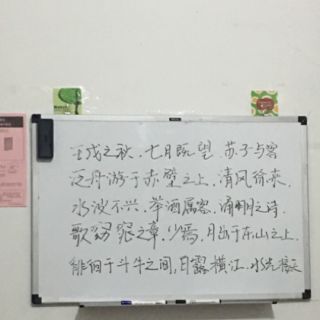 壬戌之秋,七月既望,苏子与客
泛舟游于赤壁之上,清风徐来,
水波不兴,举酒属客,诵明月之诗
歌窈窕之章,少焉,月出于东山之上,
徘徊于斗牛之间,白露横江,水光接天